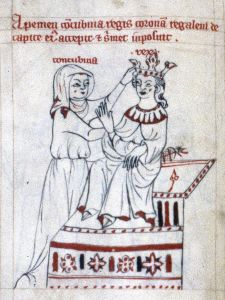 Apemen cōcubina regis coronā regalem de
capite eiꝰ accepit & s̄met inposuit.
concubina
rex